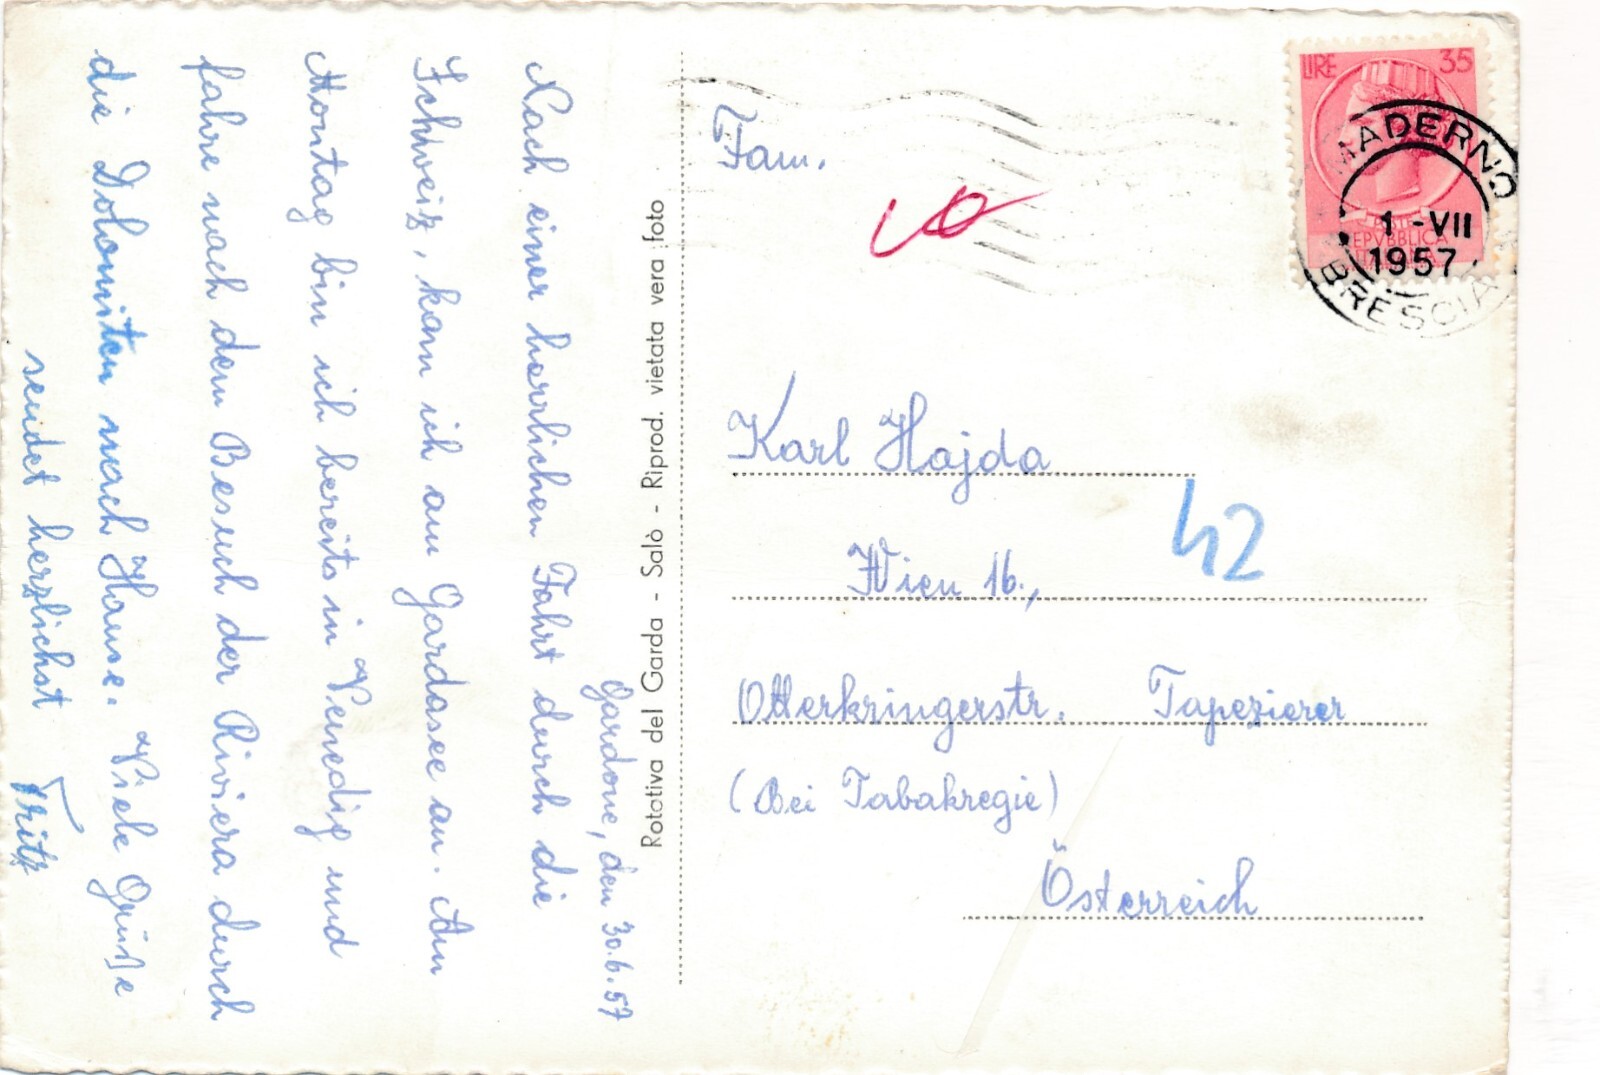 Gardone, den 30.6.57
Nach einer herrlichen Fahrt durch die
Schweiz, kam ich am Gardasee an. Am
Montag bin ich bereits in Venedig und
fahre nach dem Besuch der Riviera durch
die Dolomiten nach Hause. Viele Grüße
sendet herzlichst Fritz
Rototiva del Garda - Salò - Riprod. vietata vera foto
LIRE 35
MADERNO
1 -VII
1957
BRESCIA
Fam.
Karl Hajda
42
Wien 16.,
Otterkringerstr. Tapezierer
(Bei Tabakregie)
Österreich